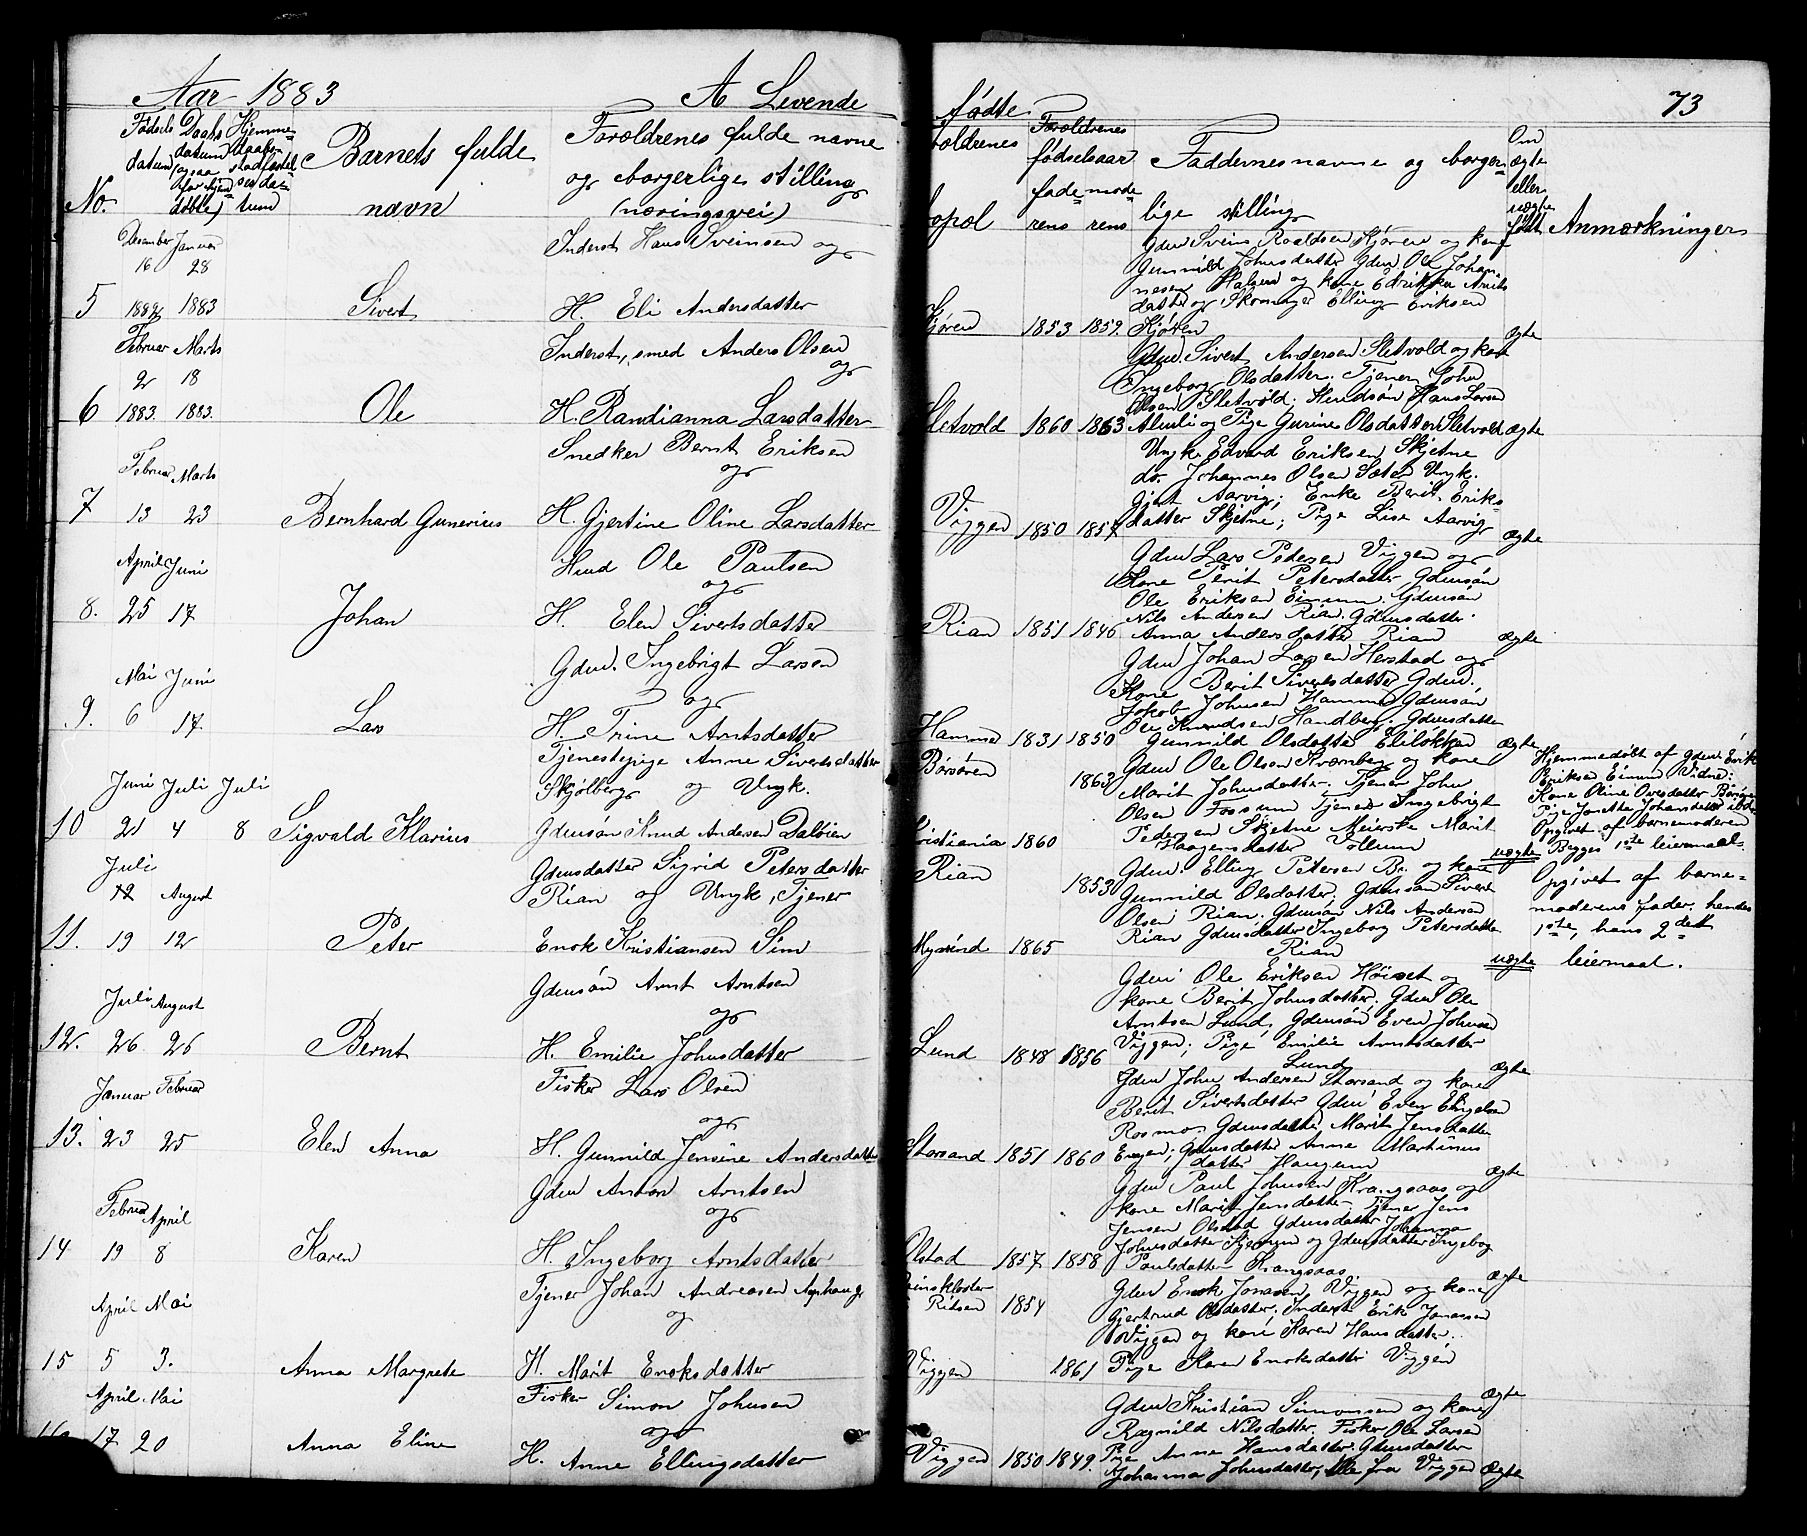 Aar 1883
A Levende
No.
Fødsels
datum
Daabs
datum
(ogsaa
for hjem
døbte)
Hjemme
daabs
stadfæstel
ses da
tum
Barnets fulde
navn
Forældrenes fulde navne
og borgerlige stilling
(næringsvei)
Desember Januar
16 28
Inderst Hans Sveinsen og
5 1882 1883 Sivert H. Eli Andersdatter
Februar Marts
Inderst, smed Anders Olsen
og
2 18
6 1883. 1883. Ole H. Randianna Larsdatter
Snedker Bernt Eriksen
Februar Marts
og
7 13 23 Bernhard Gunerius H. Gjertine Oline Larsdatter
April Juni
Hmd Ole Paulsen
og
8. 25 17 Johan H. Elen Sivertsdatter
Gdmd. Ingebrigt Larsen
Mai Juni
og
9. 6 17. Lars H. Trine Arntsdatter
Tjenestepige Anne Sivertsdatter
Juni Juli Juli
Skjølberg og Ungk.
10 21 4 8 Sigvald Klarius Gdmsøn Knud Andersen Daløien
Juli
Gdmsdatter Sigrid Petersdatter
August
Rian og Ungk, Tjener
11. 19 12 Peter Enok Kristiansen Sim
Gdmsøn Arnt Arntsen
Juli August
og
12. 26 26 Bernt H. Emilie Johnsdatter
Januar Februar
Fisker Lars Olsen
og
13. 23 25 Elen Anna H. Gunnild Jensine Andersdatter
Gdmd Anton Arntsen
Februar April
og
14 19 8 Karen H. Ingeborg Arntsdatter
April Mai
Tjener Johan Andreasen Aphaug
og
15 5 3. Anna Margrete H. Marit Enoksdatter
April. Mai
Fisker Simon Johnsen
og
17 20 Anna Eline H. Anne Ellingsdatter
73
fødte
oldrenes
opol
Forældrenes
fødselsaar
fade mode
rens rens
Faddernes navne og borger
lige stilling
Om
ægte
eller
uægte
født
Anmærkninger
Gdmd Svein Roaldsen Kjøren og kone
Gunnild Johnsdatter Gdmd Ole Johan
nesen Halsen og kone Edrikka Arnts
datter og Skomager Elling Eriksen
Kjøren 1853 1859. Kjøren ægte
Gdmd. Sivert Andersen Sletvold og kone
Ingeborg Olsdatter. Tjener John
Olsen Sletvold. Hmdsøn Hans Larsen
Sletvold 1860 1863 Almli og Pige Gurine Olsdatter Sletvold ægte
Ungk. Edvard Eriksen Skjetne
do. Johannes Olsen Sæter Ungk.
Gjert Aarvig; Enke Berit Eriks-
Viggen 1850 1857 datter Skjetne; Pige Lise Aarvig ægte
Gdmd Lars Pedersen Viggen og
Kone Berit Petersdatter, Gdmsøn
Ole Eriksen Einum. Gdmsøn
Nils Andersen Rian. Gdmsdatter.
Rian 1851 1846 Anna Andersdatter Rian ægte
Gdmd Johan Larsen Herstad og
Kone Berit Sivertsdatter Gdmd.
Jakob Johnsen Hammer Gdmsøn
Ole Knudsen Handberg; Gdmsdatter
Hamme 1831 1850 Gunnild Olsdatter Eliløkken ægte
Børsøren 1863 Gdmd Ole Olsen Strømberg og kone
Marit Johnsdatter. Tjener John
Olsen Fossum Tjener Ingebrigt
Pedersen Skjetne Meierske Marit
Kristiania 1860 Haagensdatter Vollum uægte
Hjemmedøbt af Gdmd. Erik
Eriksen Einum Vidne:
Kone Oline Ovesdatter Børsøren
Pige Jonetta Johansdatter ibd.
Opgivet af barnemoderen
Begges 1ste leiermaal.
Rian 1853 Gdmd. Elling Petersen By og kone
Gunnild Olsdatter, Gdmsøn Sivert
Olsen Rian. Gdmsøn Nils Andersen
Rian Gdmsdatter Ingeborg Petersdatter
1865 Rian uægte
Opgivet af barne=
moderens fader. hendes
1ste, hans 2det
leiermaal.
Gdmd Ole Eriksen Høiset og
kone Berit Johnsdatter. Gdmd Ole
Arntsen Lund, Gdmsøn Even Johnsen
Viggen; Pige Emilie Arntsdatter
Lund 1848 1856 Lund ægte
Gdmd John Andersen Storsand og kone
Berit Sivertsdatter Gdmd Even Engelsen
Rosmo Gdmsdatter Marit Jensdatter
Storsand 1851 1860 Engen; Gdmsdatter Anne Martinus
datter Haugum ægte
Gdmd Paul Johnsen Krangsaas og
kone Marit Jensdatter. Tjener Jens
Jensen Olstad Gdmsdatter Johanna
Johnsdatter og Gdmsdatter Ingeborg
Olstad 1857 1858 Paulsdatter Krangsaas ægte
Gdmd Enok Jonasen, Viggen og kone
Ritsen 1854 Gjertrud Olsdatter. Inderst Erik Jonassen
Viggen og kone Karen Hansdatter.
Viggen 1861 Pige Karen Enoksdatter Viggen
ægte
Gdmd Kristian Simonsen og kone
Ragnild Nilsdatter. Fisker Ole Larsen
Pige Anne Hansdatter. Gdmsdatter
Viggen 1850 1849. Johanna Johnsdatter, alle fra Viggen ægte